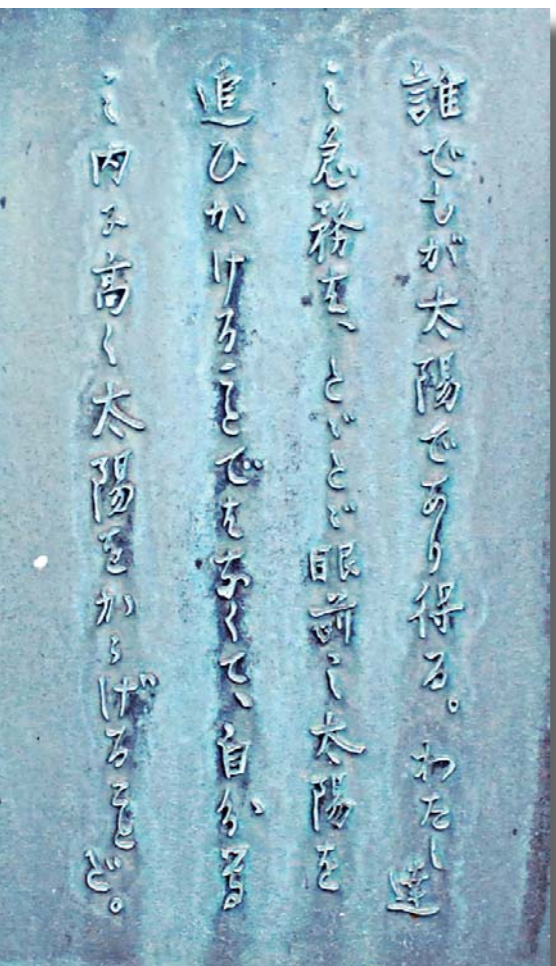 誰でもが太陽であり得る。わたし達
の急務は、たゞたゞ眼前の太陽を
追ひかけることではなくて、自分等
の内に高く太陽をかゝげることだ。